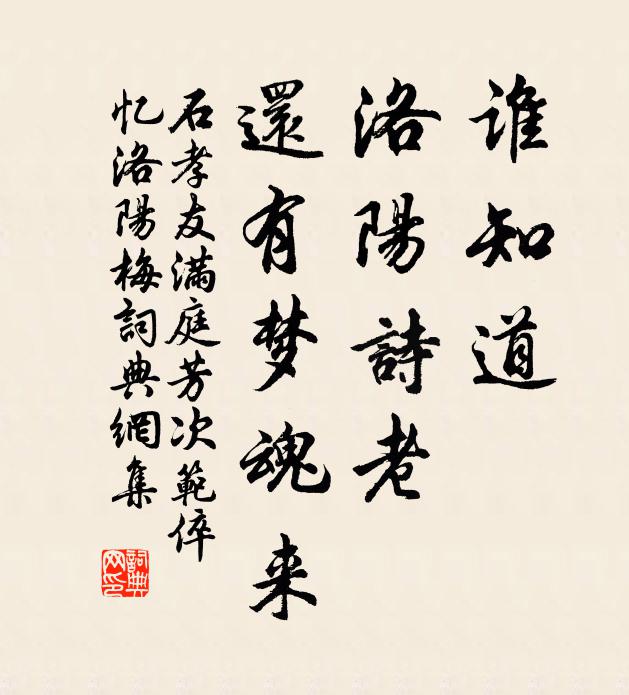 谁知道
洛陽詩老
還有梦魂来
石孝友滿庭芳次範倅
忆洛陽梅詞典網集
詞典网印